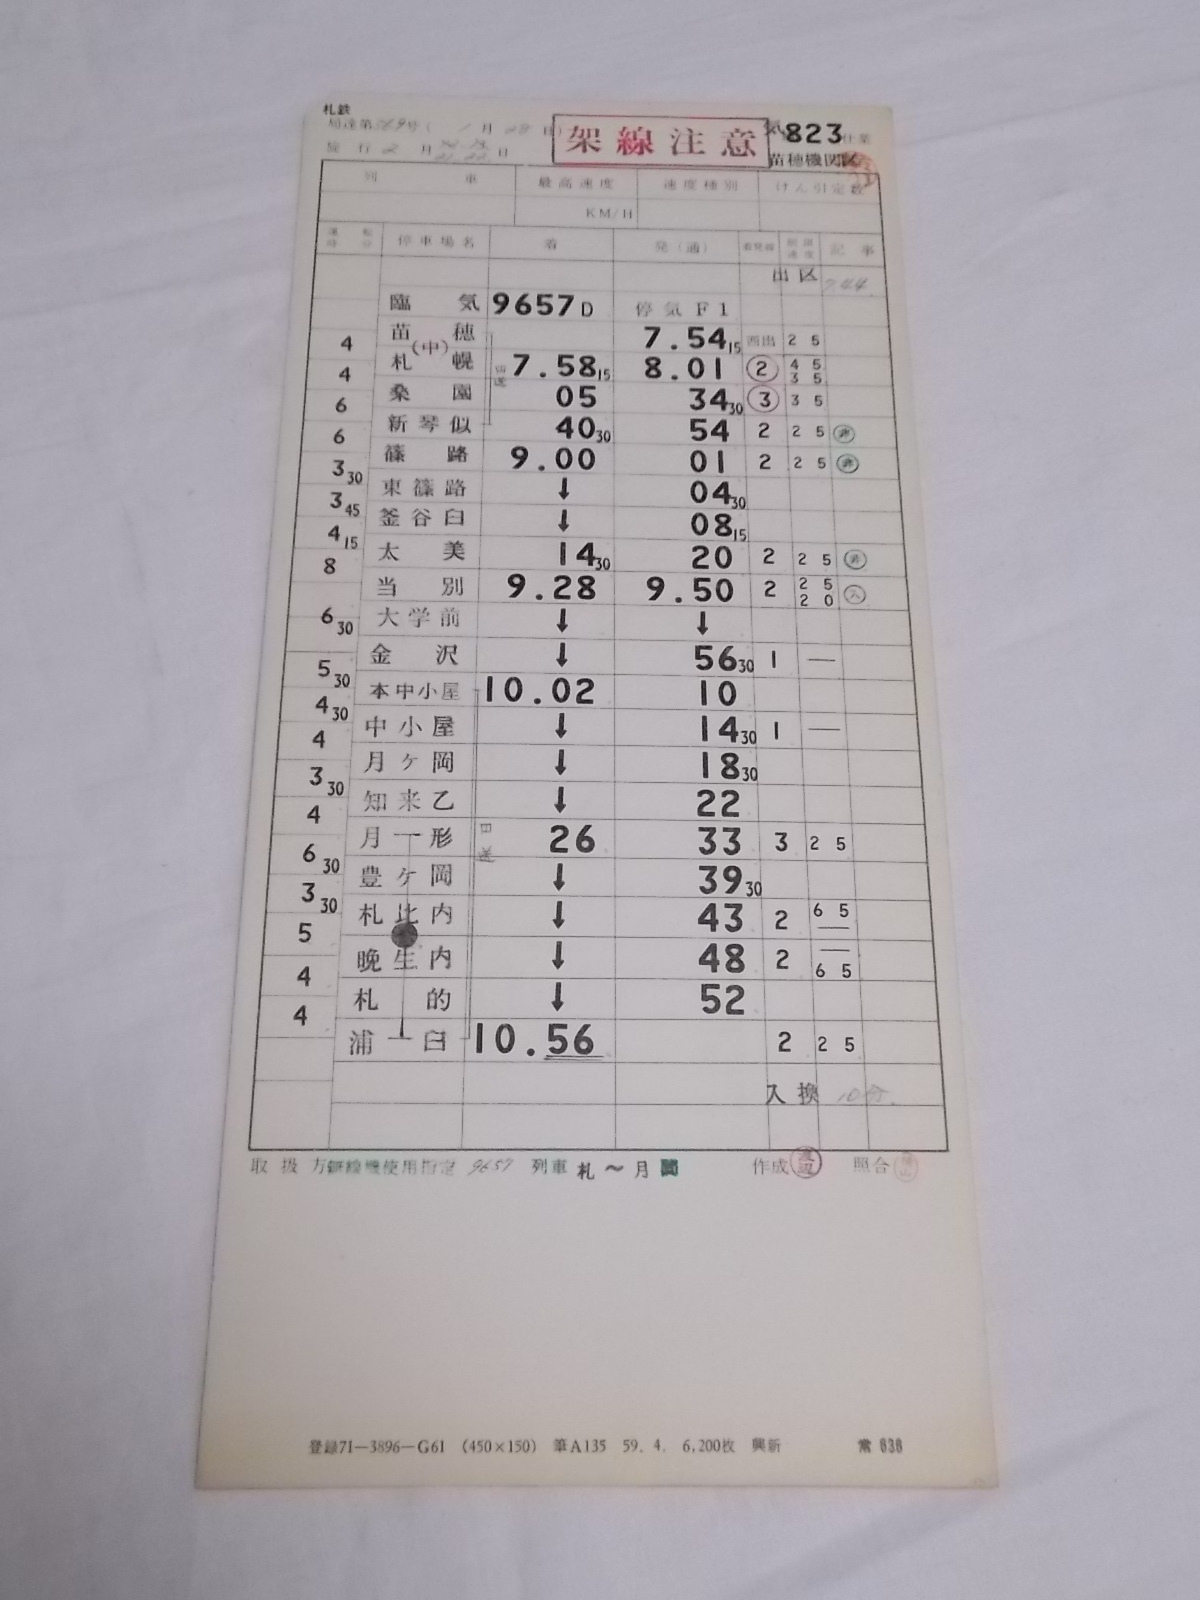 札鉄
局達第369号( 1月28日)
架線注意
気823仕業
施行2月
苗穂機関区
列 車 最高速度 速度種別 けん引定数
KM/H
運転時分 停車場名 着 発(通) 着発線 制限速度 記事
出区 7.44
臨気 9657D 停気F1
苗穂 7.54 15 西出 25
4 (中)
札幌 回送 7.58 15 8.01 ② 45 35
4
桑園 05 34 30 ③ 35
6
新琴似 40 30 54 2 25
6
篠路 9.00 01 2 25
3 30
東篠路 ↓ 04 30
3 45
釜谷臼 ↓ 08 15
4 15
太美 14 30 20 2 25
8
当別 9.28 9.50 2 25 20 入
大学前 ↓ ↓
6 30
金沢 ↓ 56 30 1 —
5 30
本中小屋 10.02 10
4 30
中小屋 ↓ 14 30 1 —
4
月ヶ岡 ↓ 18 30
3 30
知来乙 ↓ 22
4
月形 回送 26 33 3 25
6 30
豊ヶ岡 ↓ 39 30
3 30
札比内 ↓ 43 2 65 —
5
晩生内 ↓ 48 2 — 65
4
札的 ↓ 52
4
浦臼 10.56 2 25
入換 10分
取扱方 無線機使用指定 9657 列車 札～月間 作成 渡辺 照合
登録71—3896—G61 (450×150) 筆A135 59. 4. 6,200枚 興新 常 638